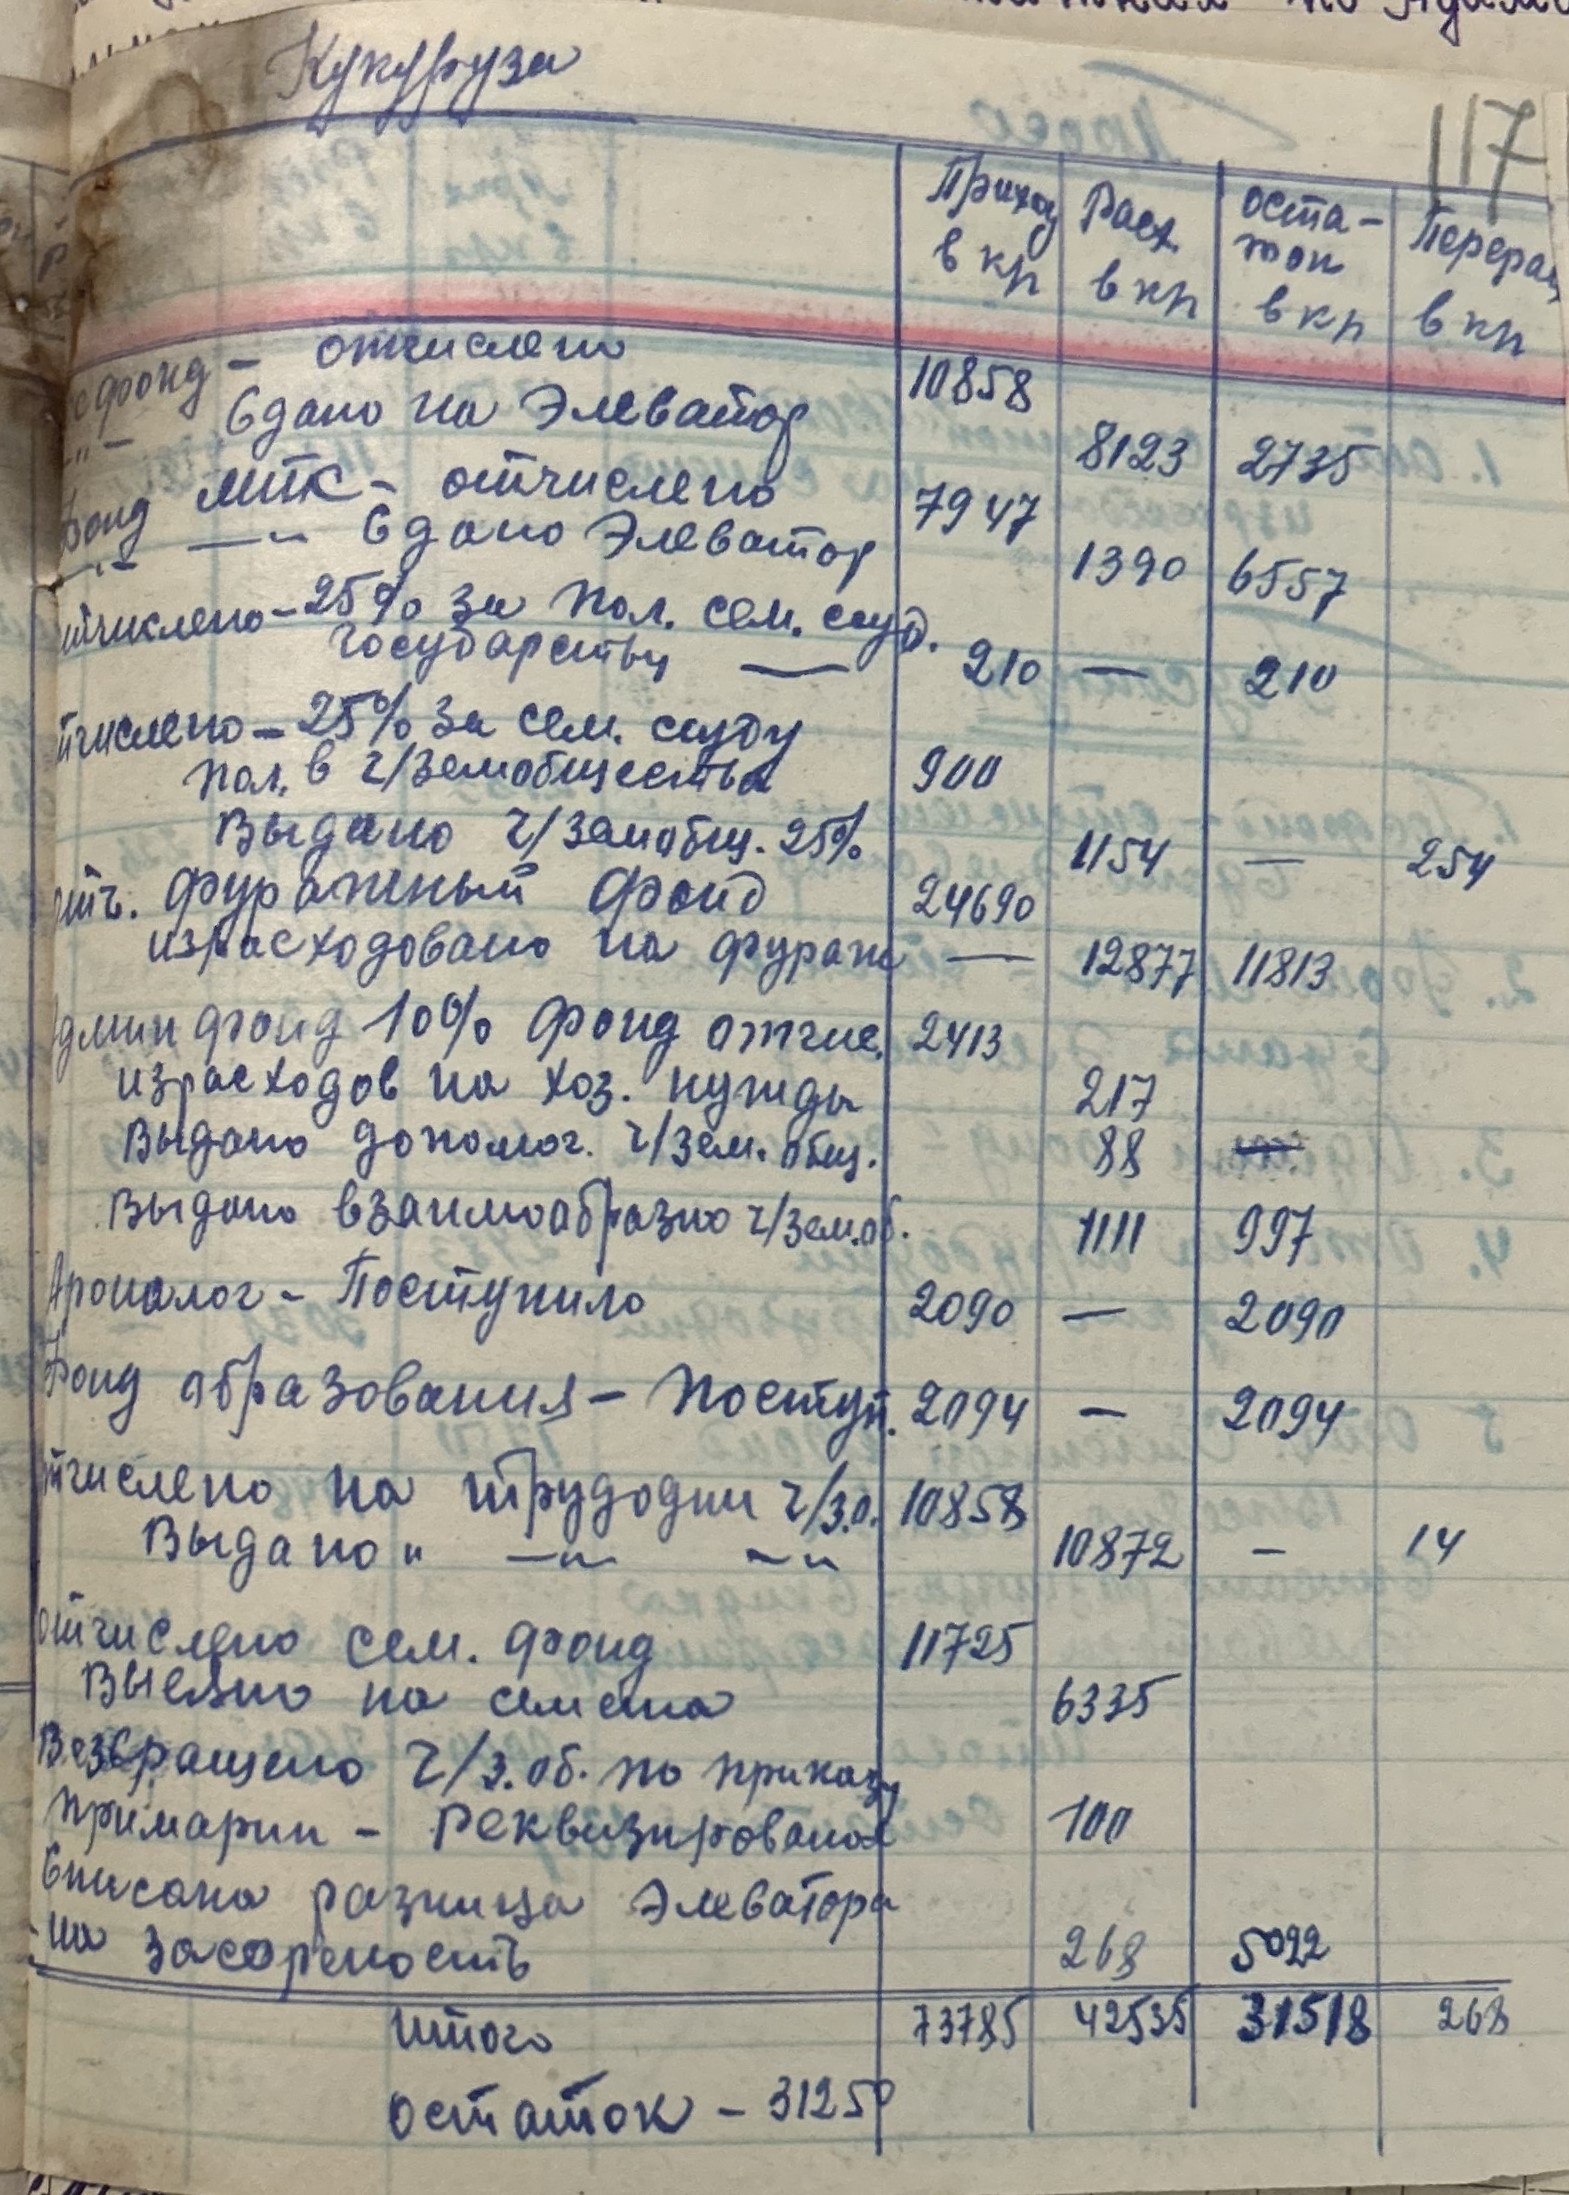 Кукуруза
117
Приход Расх оста- Перерас
в кг в кг ток в кг
в кг
фонд - отчислено 10858
-"- Сдано на Элеватор 8123 2735
Фонд МТК - отчислено 7947
-"- -"- Сдано Элеватор 1390 6557
отчислено - 25% за пол. сем. ссуд.
государству — 210 — 210
отчислено - 25% за сем. ссуду
пол. в ч/земобщества 900
Выдано ч/земобщ. 25% 1154 — 254
отч. фуражный фонд 24690
израсходовано на фураж — 12877 11813
Админ фонд 10% фонд отчис. 2413
израсходов на хоз. нужды 217
Выдано допомог. ч/зем. общ. 88
Выдано взаимообразно ч/зем.об. 1111 997
Ароналог - Поступило 2090 — 2090
Фонд образования - поступ. 2094 — 2094
отчислено на трудодни ч/з.о. 10858
Выдано " -"- -"- 10872 - 14
отчислено сем. фонд 11725
Высеяно на семена 6335
Возвращено ч/з.об. по приказу
примарии - Реквизирована 100
Списана разница Элеватора
на засореность 268 5022
Итого 73785 42535 31518 268
Остаток - 31250